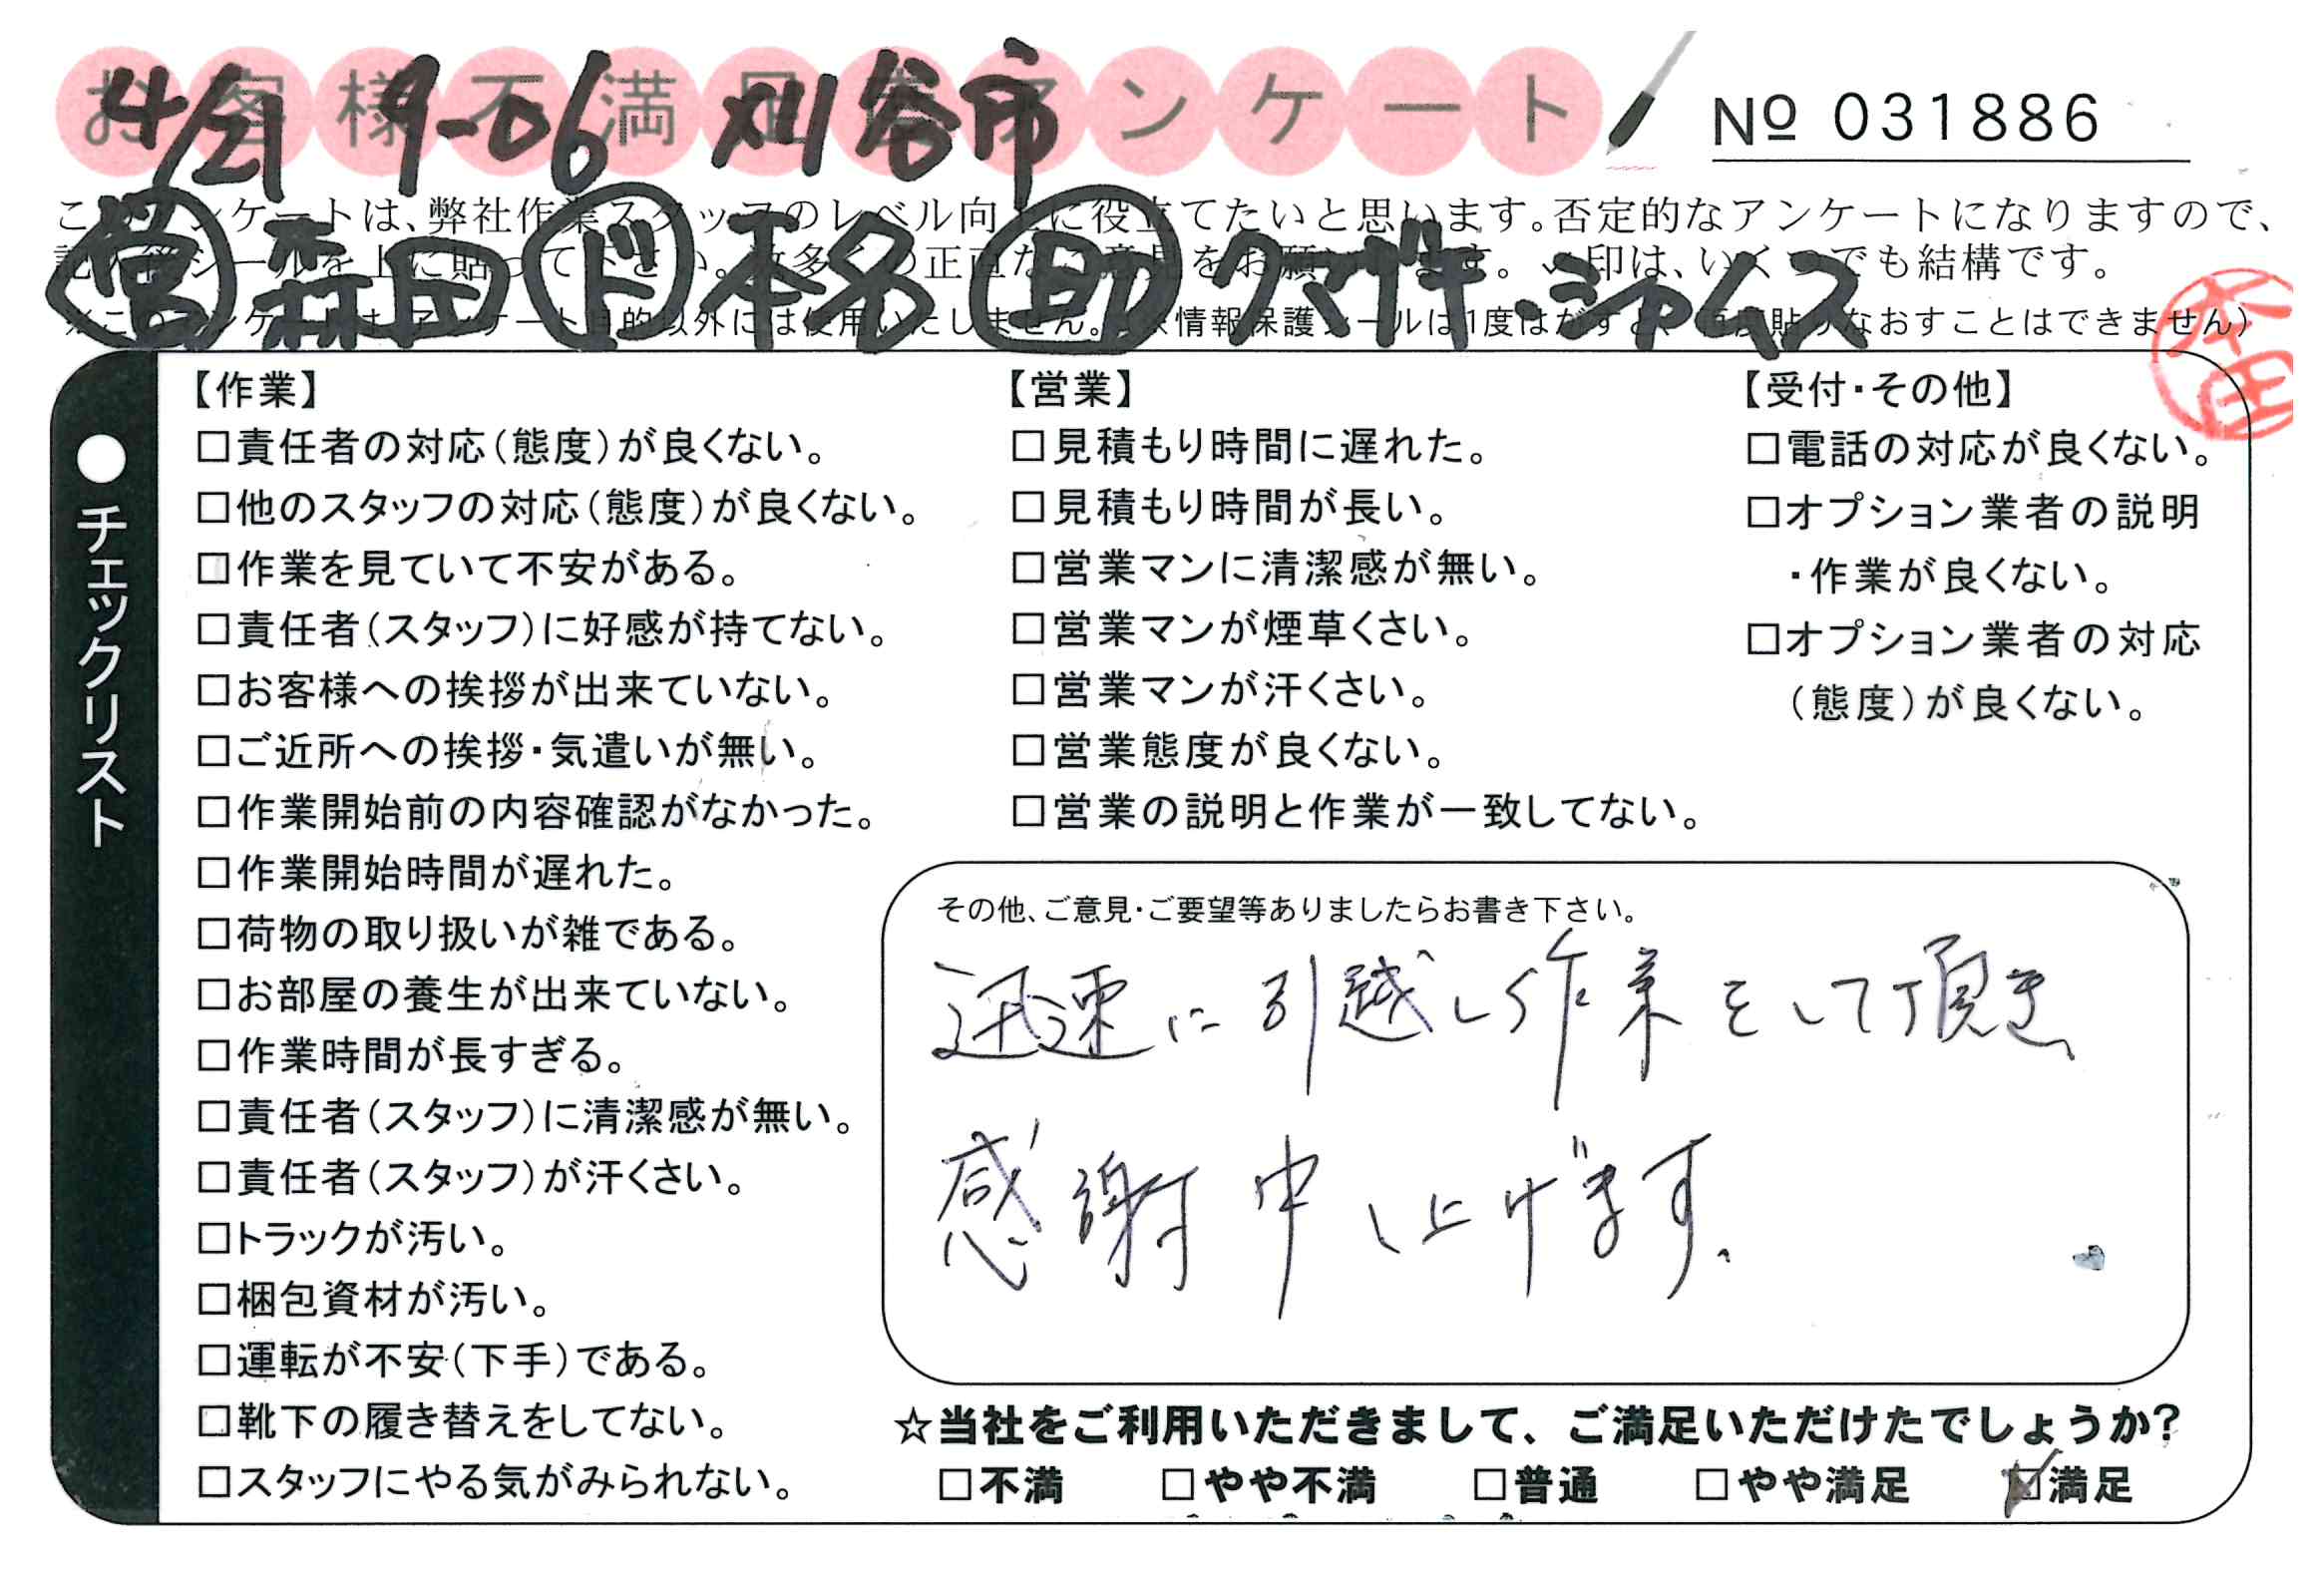 お客様不満足度アンケート
4/21 9-06 刈谷市
№ 031886
このアンケートは、弊社作業スタッフのレベル向上に役立てたいと思います。否定的なアンケートになりますので、
記入後シールを上に貼って下さい。数多くの正直なご意見をお願いします。✓印は、いくつでも結構です。
営 森田 ド 本名 助 クマザキ・ジェームス
本田
●チェックリスト
【作業】
□責任者の対応(態度)が良くない。
□他のスタッフの対応(態度)が良くない。
□作業を見ていて不安がある。
□責任者(スタッフ)に好感が持てない。
□お客様への挨拶が出来ていない。
□ご近所への挨拶・気遣いが無い。
□作業開始前の内容確認がなかった。
□作業開始時間が遅れた。
□荷物の取り扱いが雑である。
□お部屋の養生が出来ていない。
□作業時間が長すぎる。
□責任者(スタッフ)に清潔感が無い。
□責任者(スタッフ)が汗くさい。
□トラックが汚い。
□梱包資材が汚い。
□運転が不安(下手)である。
□靴下の履き替えをしてない。
□スタッフにやる気がみられない。
【営業】
□見積もり時間に遅れた。
□見積もり時間が長い。
□営業マンに清潔感が無い。
□営業マンが煙草くさい。
□営業マンが汗くさい。
□営業態度が良くない。
□営業の説明と作業が一致してない。
【受付・その他】
□電話の対応が良くない。
□オプション業者の説明
・作業が良くない。
□オプション業者の対応
(態度)が良くない。
その他、ご意見・ご要望等ありましたらお書き下さい。
迅速に引越し作業をして頂き、
感謝申し上げます。
☆当社をご利用いただきまして、ご満足いただけたでしょうか?
□不満 □やや不満 □普通 □やや満足 ☑満足